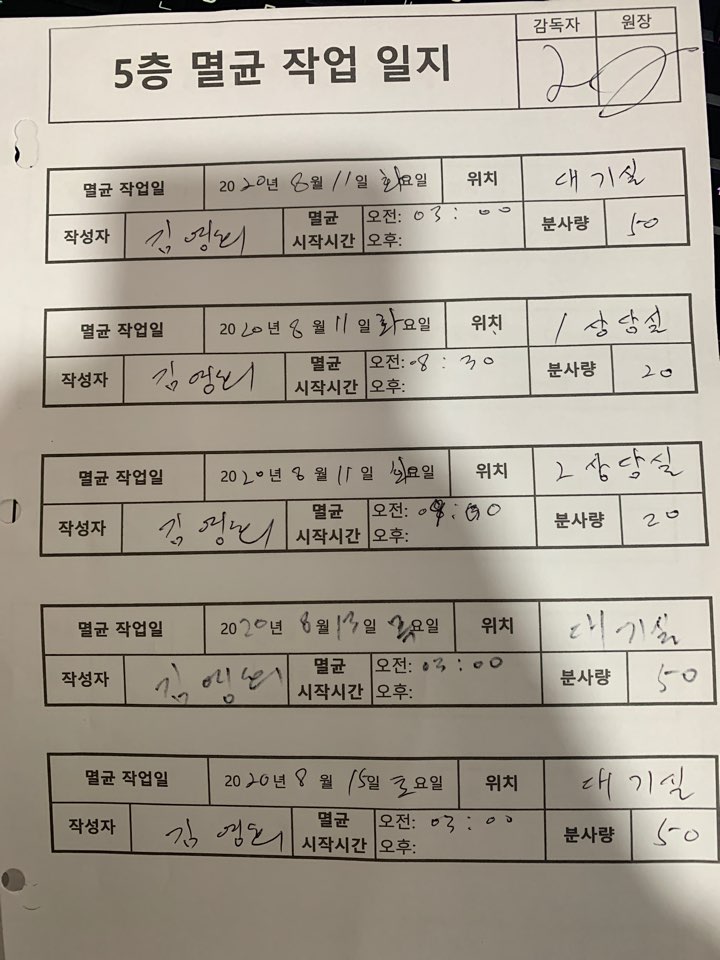 5층 멸균 작업 일지
감독자 원장
멸균 작업일 2020년 8월 11일 화요일 위치 대기실
작성자 김영 멸균 시작시간 오전: 03:00 오후: 분사량 50
멸균 작업일 2020년 8월 11일 화요일 위치 1 상담실
작성자 김영 멸균 시작시간 오전: 8:30 오후: 분사량 20
멸균 작업일 2020년 8월 11일 화요일 위치 2 상담실
작성자 김영 멸균 시작시간 오전: 오후: 분사량 20
멸균 작업일 2020년 8월 13일 요일 위치 대기실
작성자 김영 멸균 시작시간 오전: 03:00 오후: 분사량 50
멸균 작업일 2020년 8월 15일 토요일 위치 대기실
작성자 김영 멸균 시작시간 오전: 03:00 오후: 분사량 50